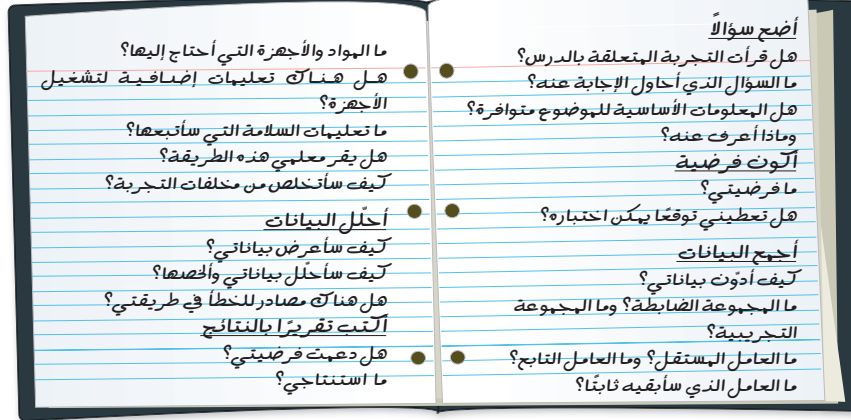 أضع سؤالاً
هل قرأت التجربة المتعلقة بالدرس؟
ما السؤال الذي أحاول الإجابة عنه؟
هل المعلومات الأساسية للموضوع متوافرة؟
وماذا أعرف عنه؟
أكون فرضية
ما فرضيتي؟
هل تعطيني توقعًا يمكن اختباره؟
أجمع البيانات
كيف أدوّن بياناتي؟
ما المجموعة الضابطة؟ وما المجموعة
التجريبية؟
ما العامل المستقل؟ وما العامل التابع؟
ما العامل الذي سأبقيه ثابتًا؟
ما المواد والأجهزة التي أحتاج إليها؟
هل هناك تعليمات إضافية لتشغيل
الأجهزة؟
ما تعليمات السلامة التي سأتبعها؟
هل يقر معلمي هذه الطريقة؟
كيف سأتخلص من مخلفات التجربة؟
أحلّل البيانات
كيف سأعرض بياناتي؟
كيف سأحلّل بياناتي وألخصها؟
هل هناك مصادر للخطأ في طريقتي؟
أكتب تقريرًا بالنتائج
هل دعمت فرضيتي؟
ما استنتاجي؟